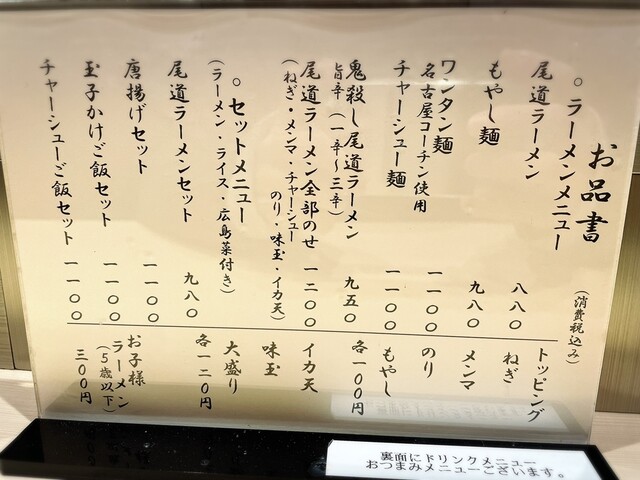 お品書
(消費税込み)
○ラーメンメニュー
尾道ラーメン 八八〇
もやし麺 九八〇
ワンタン麺 一一〇〇
名古屋コーチン使用
チャーシュー麺 一一〇〇
鬼殺し尾道ラーメン 九五〇
旨辛(一辛～三辛)
尾道ラーメン全部のせ 一二〇〇
(ねぎ・メンマ・チャーシュー
のり・味玉・イカ天)
○セットメニュー
(ラーメン・ライス・広島菜付き)
尾道ラーメンセット 九八〇
唐揚げセット 一一〇〇
玉子かけご飯セット 一一〇〇
チャーシューご飯セット 一一〇〇
トッピング
ねぎ
メンマ
のり
もやし
各一〇〇円
イカ天
味玉
大盛り
各一二〇円
お子様
ラーメン
(5歳以下)
三〇〇円
裏面にドリンクメニュー
おつまみメニューございます。